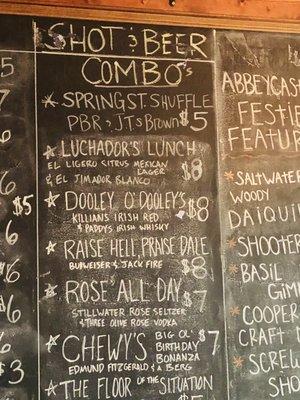 SHOT & BEER
COMBO's
SPRING ST. SHUFFLE
PBR & JTS BROWN $5
LUCHADOR'S LUNCH
EL LIGERO CITRUS MEXICAN
LAGER $8
& EL JIMADOR BLANCO
DOOLEY O'DOOLEY'S
KILLIANS IRISH RED $8
& PADDY'S IRISH WHISKY
RAISE HELL, PRAISE DALE
BUDWEISER & JACK FIRE $8
ROSE' ALL DAY
STILLWATER ROSE SELTZER $7
& THREE OLIVE ROSE VODKA
CHEWY'S BIG OL' BIRTHDAY BONANZA $7
EDMUND FITZGERALD &
THE FLOOR OF THE SITUATION
5
7
6
6
$5
6
6
$6
6
3
ABBEYCAS
FESTI
FEATUR
SALTWATER
WOODY
DAIQUI
SHOOTER
BASIL
GIM
COOPER
CRAFT
SCREW
SHO